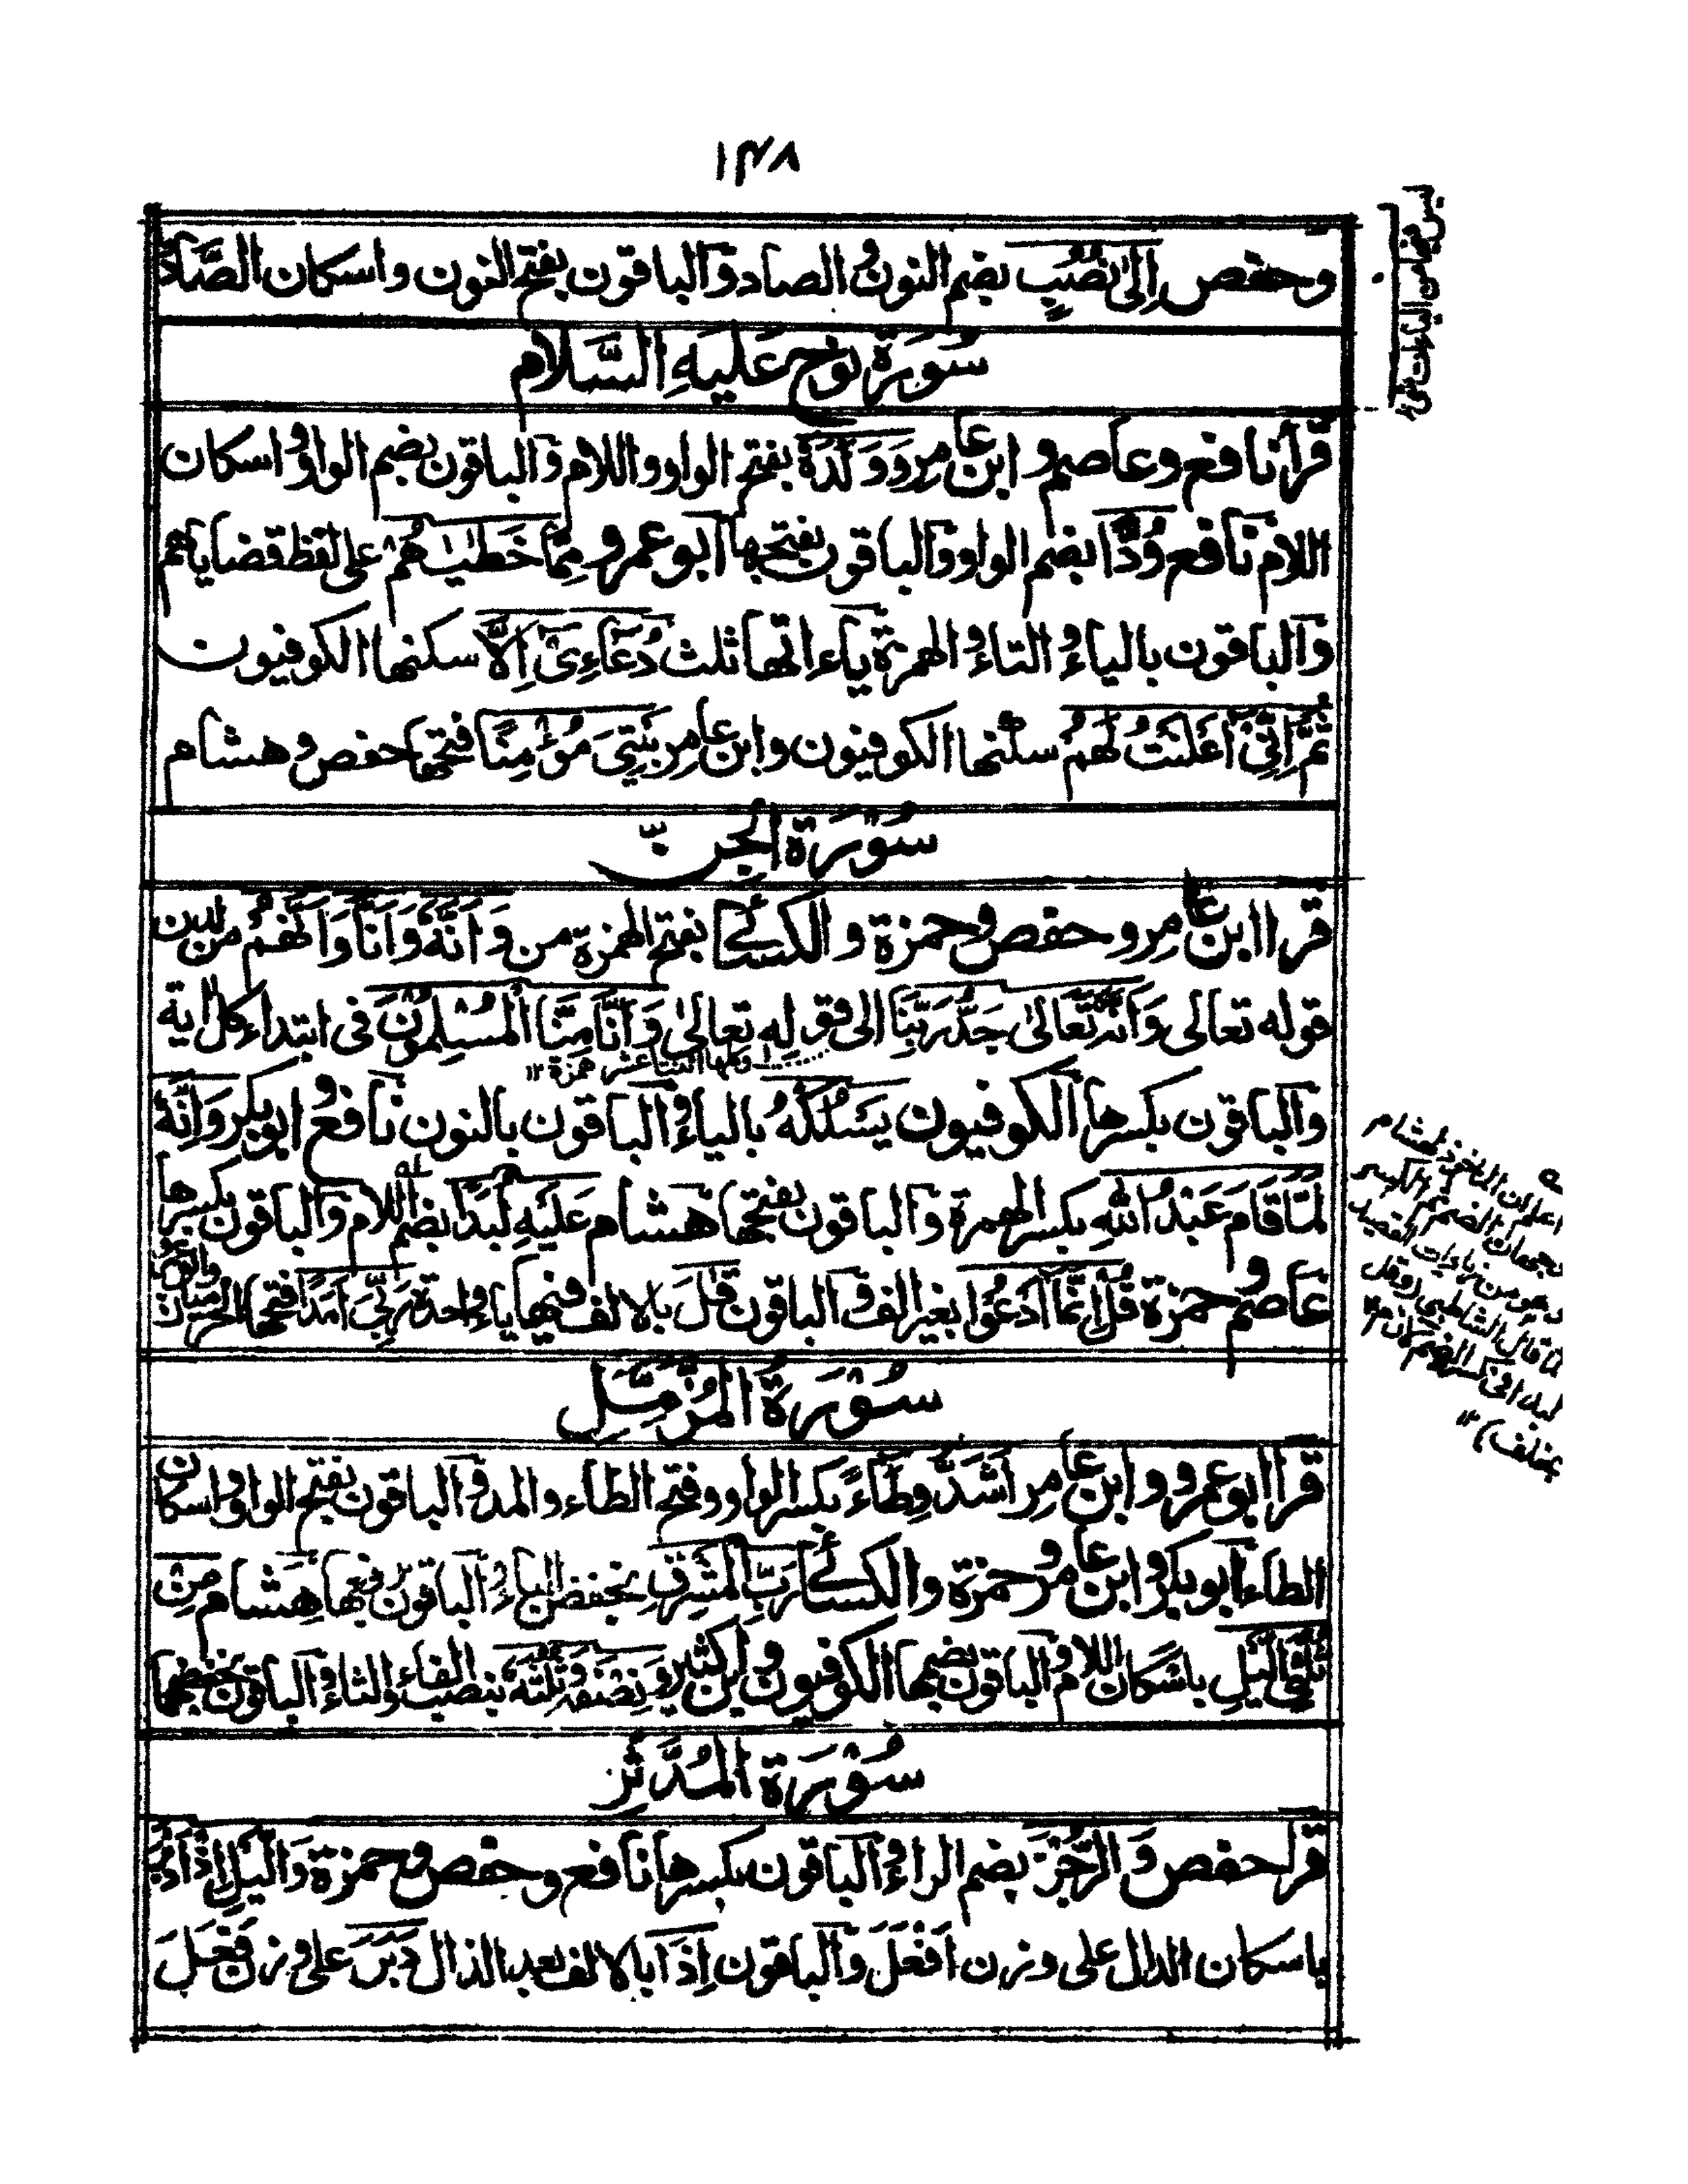 ١٣٨
وحفص اِلىٰ نُصُبٍ بضم النون والصاد والباقون بفتح النون واسكان الصَّاد
سُوۡرَة نُوح عَلَيهِ السَّلام
قرأ نافع وعاصم وابن عامر وَوَلَدُهٗ بفتح الواو واللام والباقون بضم الواو واسكان
اللام نافع وُدًّا بضم الواو والباقون بفتحها ابو عمرو مِمَّا خَطٰيٰهُمۡ على لفظ قضاياهم
والباقون بالياء والتاء والهمزة ياءاتها ثلث دُعَآءِیۡ اِلَّا سكنها الكوفيون
ثُمَّ اِنِّیۡ اَعۡلَنۡتُ لَهُمۡ سكنها الكوفيون وابن عامر بَيۡتِیَ مُؤۡمِنًا فتحها حفص وهشام
سُوۡرَة الجِنّ
قرا ابن عامر وحفص وحمزة والكسائى بفتح الهمزة من وَاَنَّهٗ وَاَنَّا وَاَنَّهُمۡ من لدن
قوله تعالى وَاَنَّهٗ تَعَالىٰ جَدُّ رَبِّنَا الى قوله تعالىٰ وَاَنَّا مِنَّا الۡمُسۡلِمُوۡنَ فى ابتداء كل اية
وكلها اثنتا عشر همزة ١٢
والباقون بكسرها الكوفيون يَسۡلُكۡهُ بالياء والباقون بالنون نافع وابو بكر وَاِنَّهٗ
لَمَّا قَامَ عَبۡدُ اللّٰهِ بكسر الهمزة والباقون بفتحها هشام عَلَيۡهِ لُبَدًا بضم اللام والباقون بكسرها
عاصم وحمزة قُلۡ اِنَّمَا اَدۡعُوۡا بغير الف والباقون قٰلَ بالالف فيها ياء واحدة رَبِّیۡ اَمَدًا فتحها الحرميان
وابو عمرو
سُوۡرَة المُزَّمِّل
قرا ابو عمرو وابن عامر اَشَدُّ وِطَآءً بكسر الواو وفتح الطاء والمد والباقون بفتح الواو واسكان
الطاء ابو بكر وابن عامر وحمزة والكسائى رَبِّ الۡمَشۡرِقِ بخفض الباء والباقون برفعها هشام مِنۡ
ثُلۡثَیِ الَّيۡلِ باسكان اللام والباقون بضمها الكوفيون وابن كثير وَنِصۡفَهٗ وَثُلُثَهٗ بنصب الفاء والثاء والباقون بخفضهما
سُوۡرَة المُدَّثِّر
قرا حفص وَالرُّجۡزَ بضم الراء والباقون بكسرها نافع وحفص وحمزة وَالَّيۡلِ اِذۡ اَدۡبَرَ
باسكان الدال على وزن اَفۡعَلَ والباقون اِذَا بالالف بعد الذال دَبَرَ على وزن فَعَلَ
ليس فيها من الياءات شئ